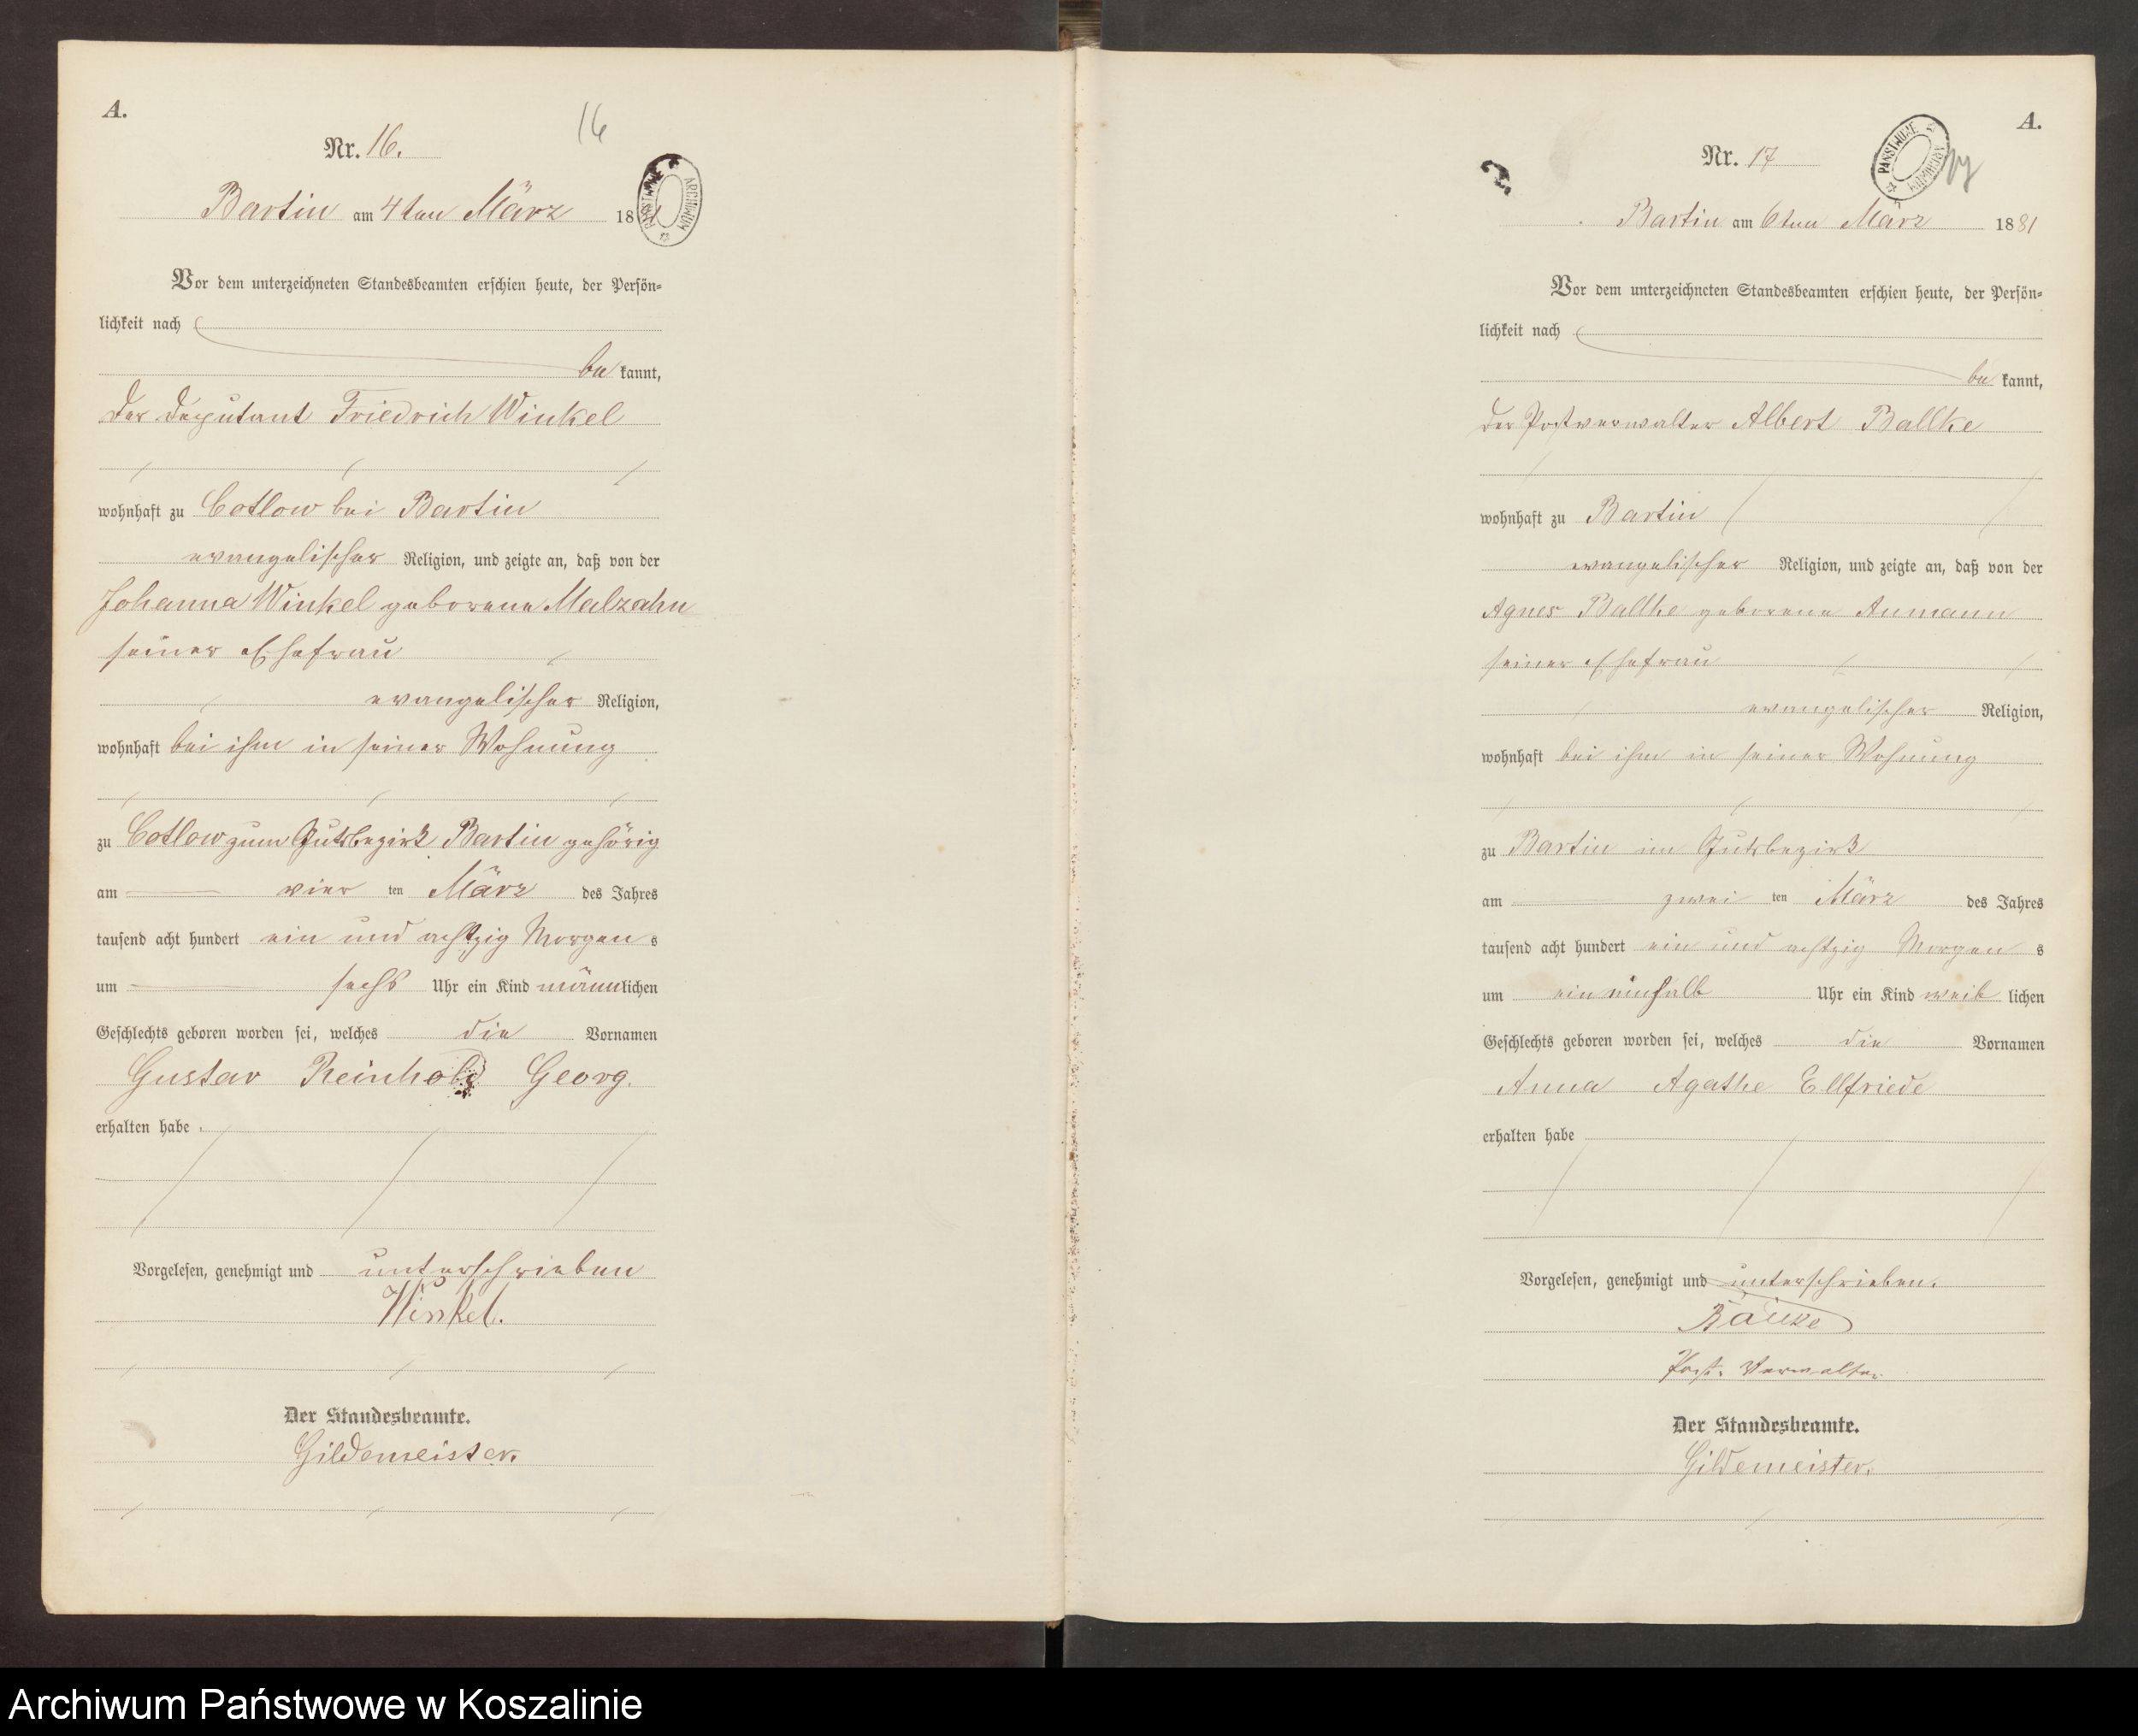 A.
16
Nr. 16.
Bartin am 4ten März 18
PAŃSTWOWE ARCHIWUM
Vor dem unterzeichneten Standesbeamten erschien heute, der Persön-
lichkeit nach
be kannt,
der Deputant Friedrich Winkel
wohnhaft zu Cotlow bei Bartin
evangelischer Religion, und zeigte an, daß von der
Johanna Winkel geborene Malzahn
seiner Ehefrau
evangelischer Religion,
wohnhaft bei ihm in seiner Wohnung
zu Cotlow zum Gutsbezirk Bartin gehörig
am vier ten März des Jahres
tausend acht hundert ein und achtzig Morgen s
um sechs Uhr ein Kind männlichen
Geschlechts geboren worden sei, welches die Vornamen
Gustav Reinhold Georg.
erhalten habe.
Vorgelesen, genehmigt und unterschrieben
Winkel.
Der Standesbeamte.
Gildemeister.
A.
Nr. 17
PAŃSTWOWE ARCHIWUM
17
Bartin am 6ten März 1881
Vor dem unterzeichneten Standesbeamten erschien heute, der Persön-
lichkeit nach
be kannt,
der Postverwalter Albert Ballke
wohnhaft zu Bartin
evangelischer Religion, und zeigte an, daß von der
Agnes Ballke geborene Aumann
seiner Ehefrau
evangelischer Religion,
wohnhaft bei ihm in seiner Wohnung
zu Bartin im Gutsbezirk
am zwei ten März des Jahres
tausend acht hundert ein und achtzig Morgen s
um ein einhalb Uhr ein Kind weib lichen
Geschlechts geboren worden sei, welches die Vornamen
Anna Agathe Ellfriede
erhalten habe
Vorgelesen, genehmigt und unterschrieben.
Post-Verwalter
Der Standesbeamte.
Gildemeister.
Archiwum Państwowe w Koszalinie